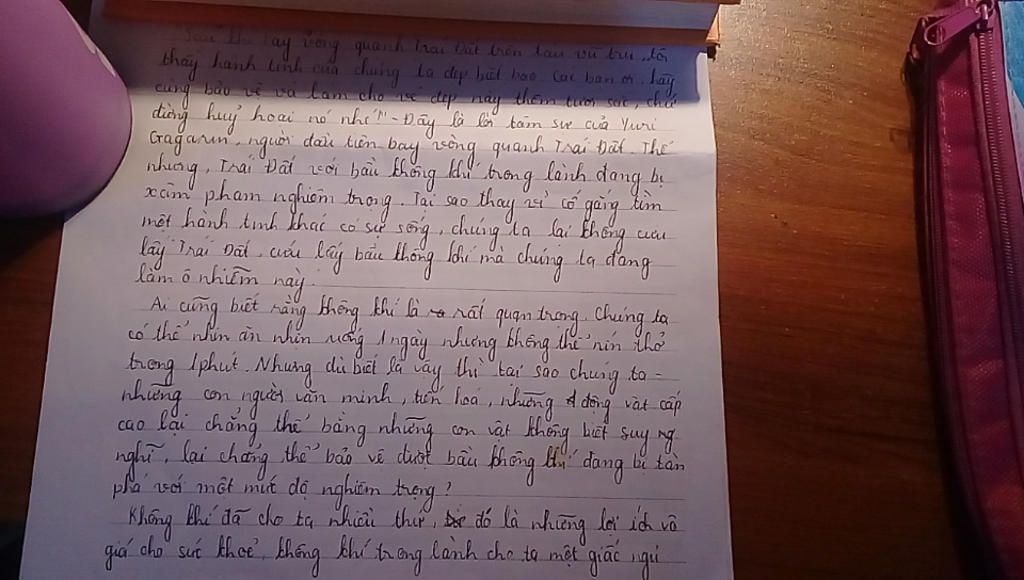 Sau khi bay vòng quanh Trái Đất trên tàu vũ trụ, tôi
thấy hành tinh của chúng ta đẹp biết bao. Các bạn ơi, hãy
cùng bảo vệ và làm cho vẻ đẹp này thêm tươi sắc, chứ
đừng huỷ hoại nó nhé!" - Đây là lời tâm sự của Yuri
Gagarin, người đầu tiên bay vòng quanh Trái Đất. Thế
nhưng, Trái Đất với bầu không khí trong lành đang bị
xâm phạm nghiêm trọng. Tại sao thay vì cố gắng tìm
một hành tinh khác có sự sống, chúng ta lại không cứu
lấy Trái Đất, cứu lấy bầu không khí mà chúng ta đang
làm ô nhiễm này.
Ai cũng biết rằng không khí là rất quan trọng. Chúng ta
có thể nhịn ăn nhịn uống 1 ngày nhưng không thể nín thở
trong 1 phút. Nhưng dù biết là vậy thì tại sao chúng ta -
những con người văn minh, tiến hoá, những động vật cấp
cao lại chẳng thể bằng những con vật không biết suy ng
nghĩ, lại chẳng thể bảo vệ được bầu không khí đang bị tàn
phá với một mức độ nghiêm trọng?
Không khí đã cho ta nhiều thứ, đó là những lợi ích vô
giá cho sức khoẻ, không khí trong lành cho ta một giấc ngủ